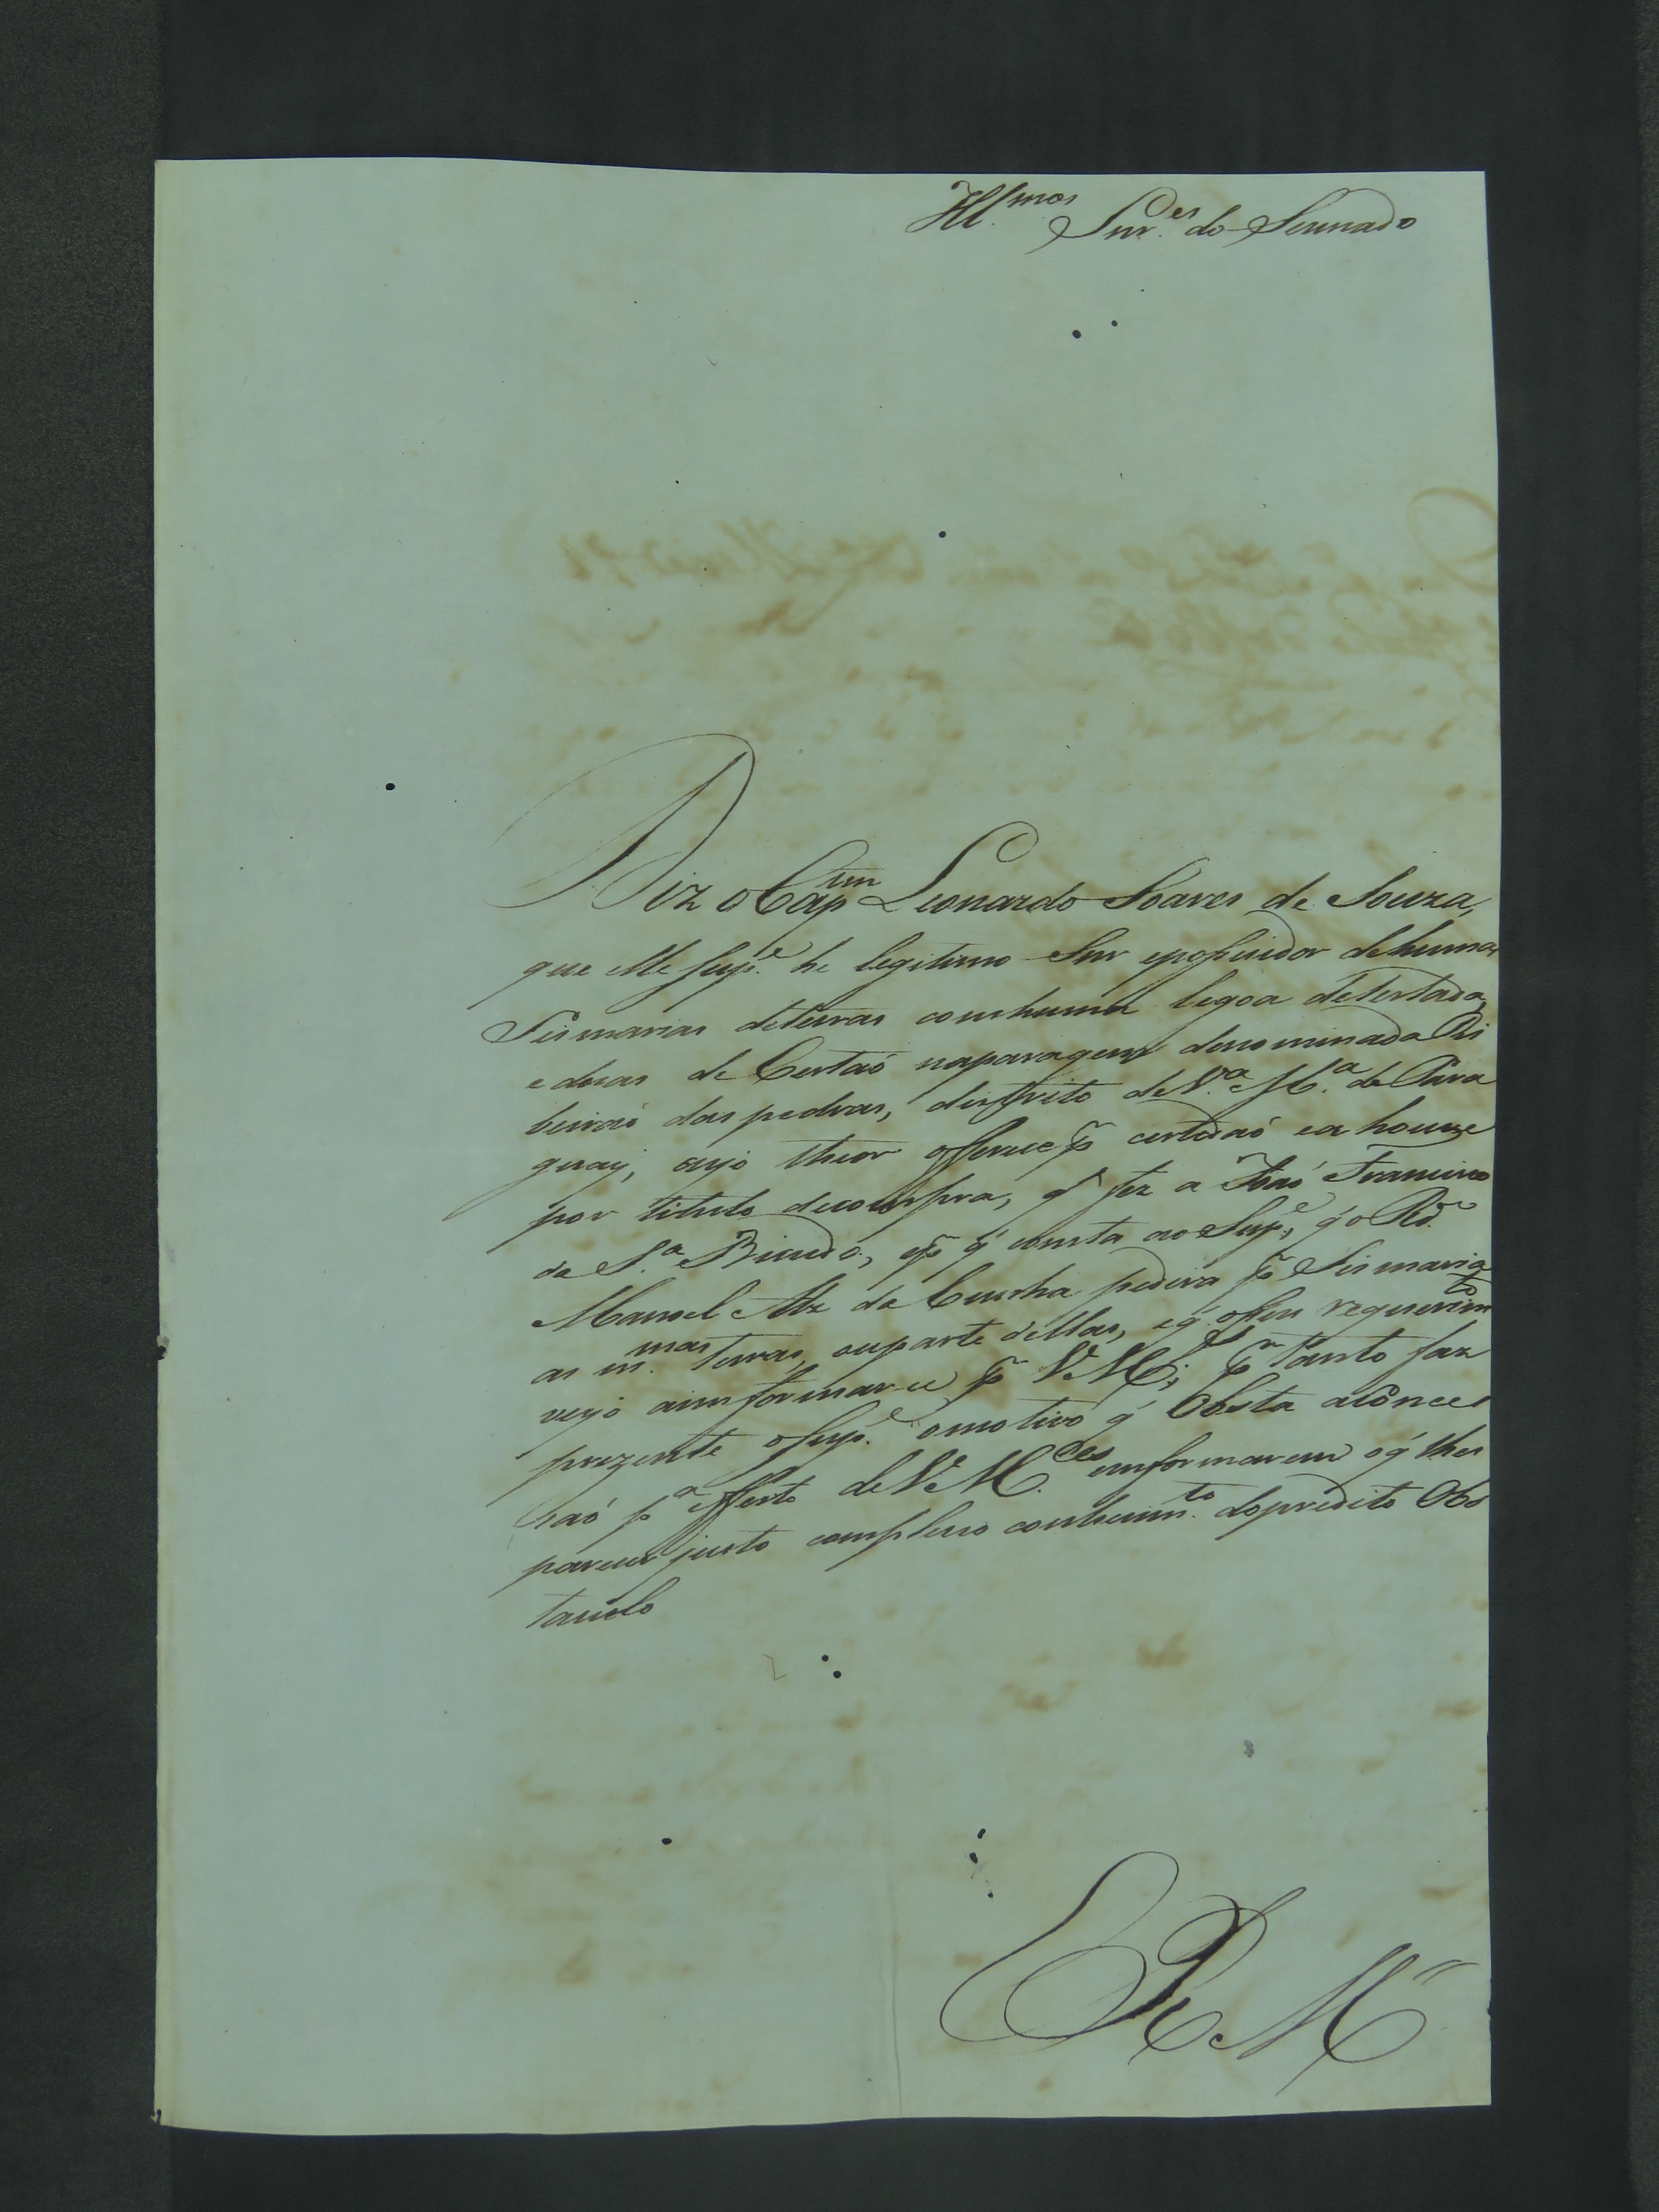 Ill.mos Snr.es do Scennado
Diz o Captem Leonardo Soares de Souza,
que elle sup.e he legitimo Snr epossuidor dehumas
Sismarias deterras comhuma legoa detestada,
eduas de Certaó naparagem denominada Ri
beiraó daspedras, destrito deV.a M.a de Para
guay, cujo theor offerece p certidaó ea houve
por titulo decompra, q' fez a Joaó Francisco
da S.a Bicudo, e p q' consta ao Sup.e, q' o Rd.o
Manoel Alz da Cunha pedira p Sismaria
as m.mas terras, ouparte dellas, eq' oseu requerimto
veyo ainnformar-ce p V.M.ces; p r tanto faz
prezente osup.e omotivo q' Obsta aConces
saó p a effeito deV.M.ces emformarem oq' lhes
parecer justo compleno conhecim.to dopredito Obs
taculo
E R M.ce